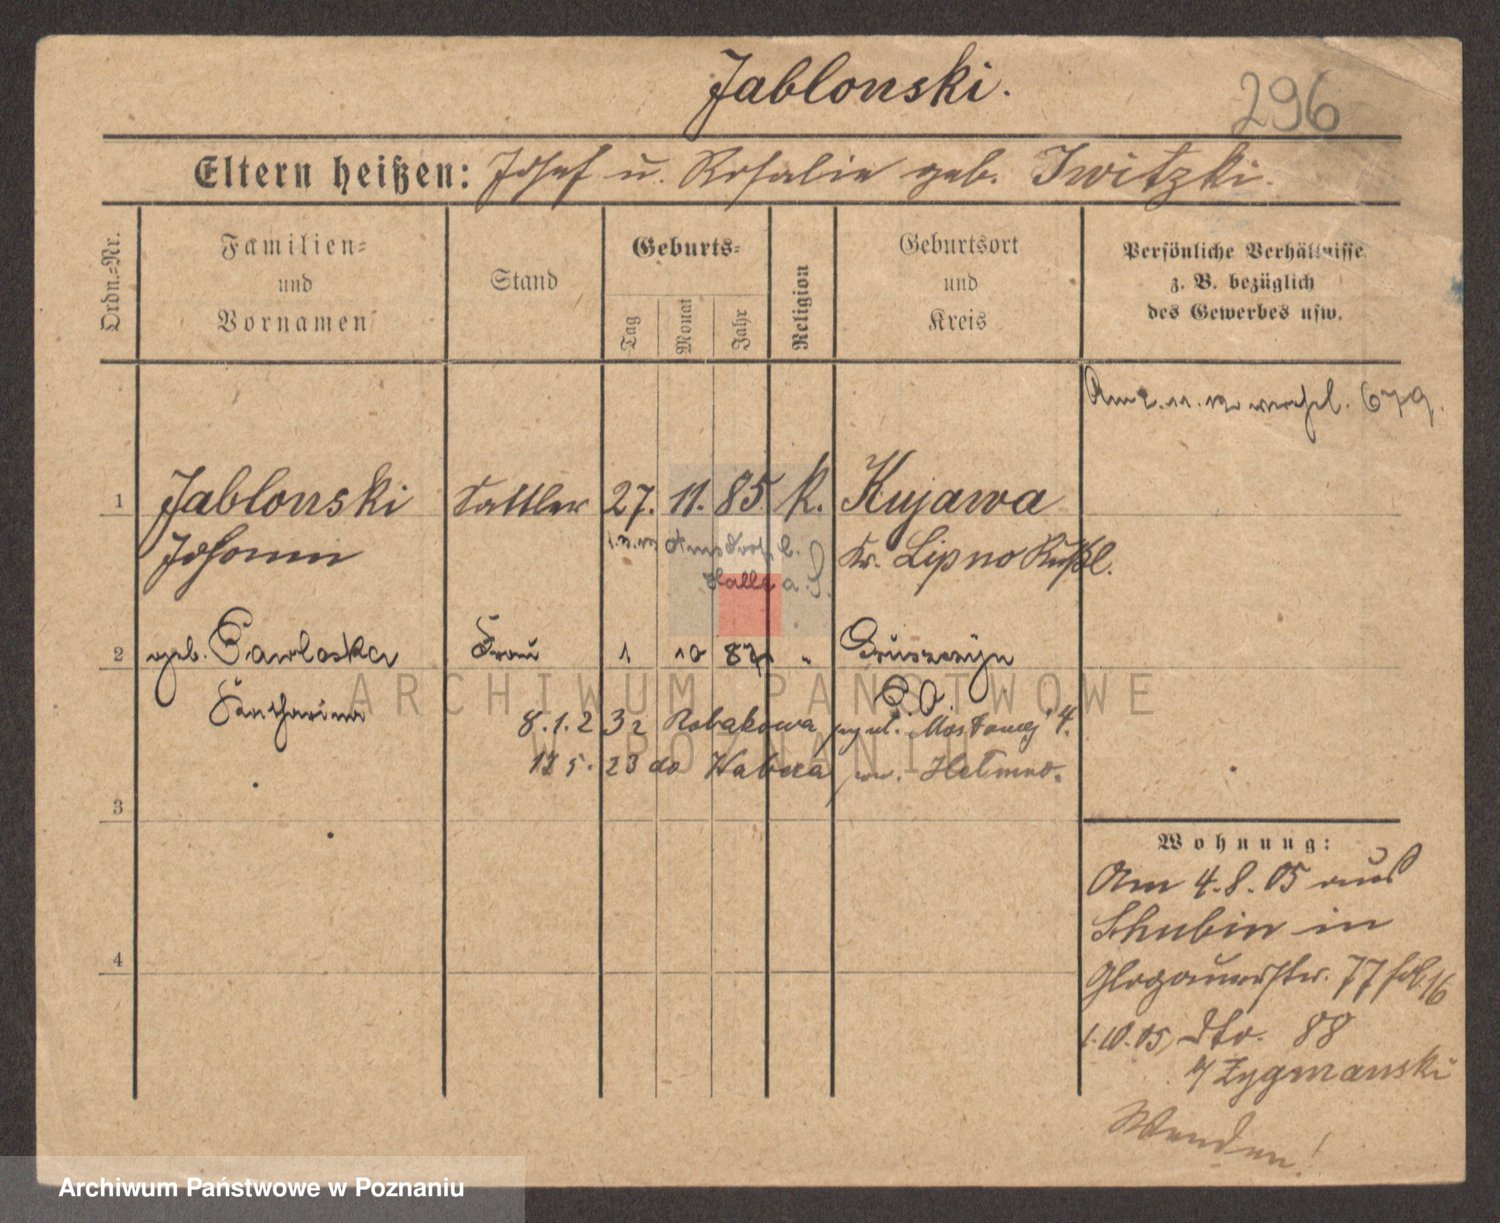 Jablonski.
296
Eltern heißen: Josef u. Rosalie geb. Iwitzki.
Ordn.=Nr.
Familien=
und
Vornamen
Stand
Geburts=
Tag
Monat
Jahr
Religion
Geburtsort
und
Kreis
Persönliche Verhältnisse
z. B. bezüglich
des Gewerbes usw.
Am 2. 11. 679.
1 Jablonski Sattler 27. 11. 85 k. Kujawa
Johann Kr. Lipno Rußl.
Halle a. S.
2 geb. Pawlaska Frau 1 10 87 "
Katharina
8. 1. 23 Robakowa
do
3
4
Wohnung:
Am 4. 8. 05 aus
Schubin in
Glogauerstr. 77 16
1. 10. 05, dto. 88
b/ Zygmanski
Wenden!
ARCHIWUM PAŃSTWOWE
W POZNANIU
Archiwum Państwowe w Poznaniu